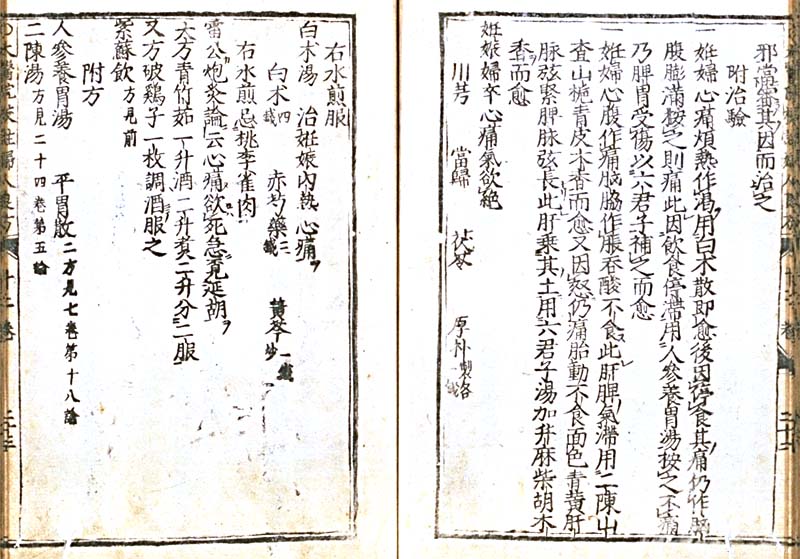 邪當審其因而治之
附治驗
妊婦心痛煩熱作渴用白朮散即愈後因停食其痛仍作胸
腹膨滿按之則痛此因飲食停滯用人參養胃湯按之不痛
乃脾胃受傷以六君子補之而愈
妊婦心腹作痛胸脇作脹吞酸不食此肝脾氣滯用二陳山
查山梔青皮木香而愈又因怒仍痛胎動不食面色青黃肝
脉弦緊脾脉弦長此肝乘其土用六君子湯加升麻柴胡木
香而愈
妊娠婦卒心痛氣欲絕
川芎 當歸 茯苓 厚朴製各錢
右水煎服
白朮湯 治妊娠內熱心痛
白朮四錢 赤芍藥三錢 黃芩炒一錢
右水煎忌桃李雀肉
雷公炮炙論云心痛欲死急覓延胡
大方青竹茹一升酒二升煮二升分二服
又方破鷄子一枚調酒服之
紫蘇飲方見前
附方
人參養胃湯 平胃散二方見七卷第十八論
二陳湯方見二十四卷第五論